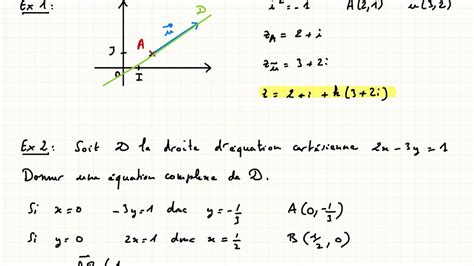 Ex 1 :
i² = -1   A(2,1)   u⃗(3,2)
D
u⃗
A
z_A = 2 + i
J
z_u⃗ = 3 + 2i
O   I
z = 2 + i + k(3 + 2i)
Ex 2 : Soit D la droite d'équation cartésienne 2x - 3y = 1
Donner une équation complexe de D.
Si x = 0   -3y = 1 donc y = -1/3   A(0, -1/3)
Si y = 0   2x = 1 donc x = 1/2   B(1/2, 0)